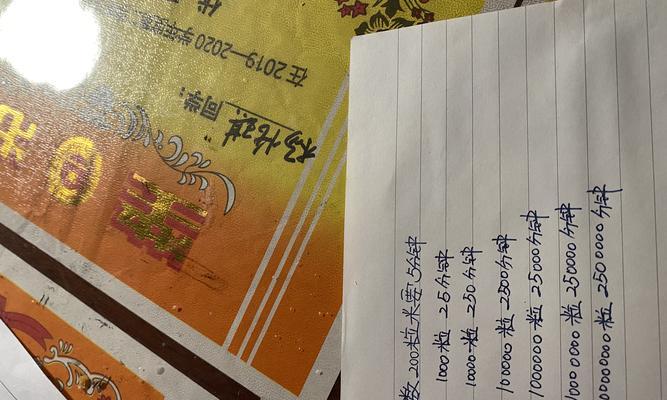 数200粒米要5分钟
1000粒 25分钟
10000粒 250分钟
100000粒 2500分钟
1000000粒 25000分钟
10000000粒 250000分钟
00000000粒 2500000分钟
在2019—2020学年度第
同学:
奖